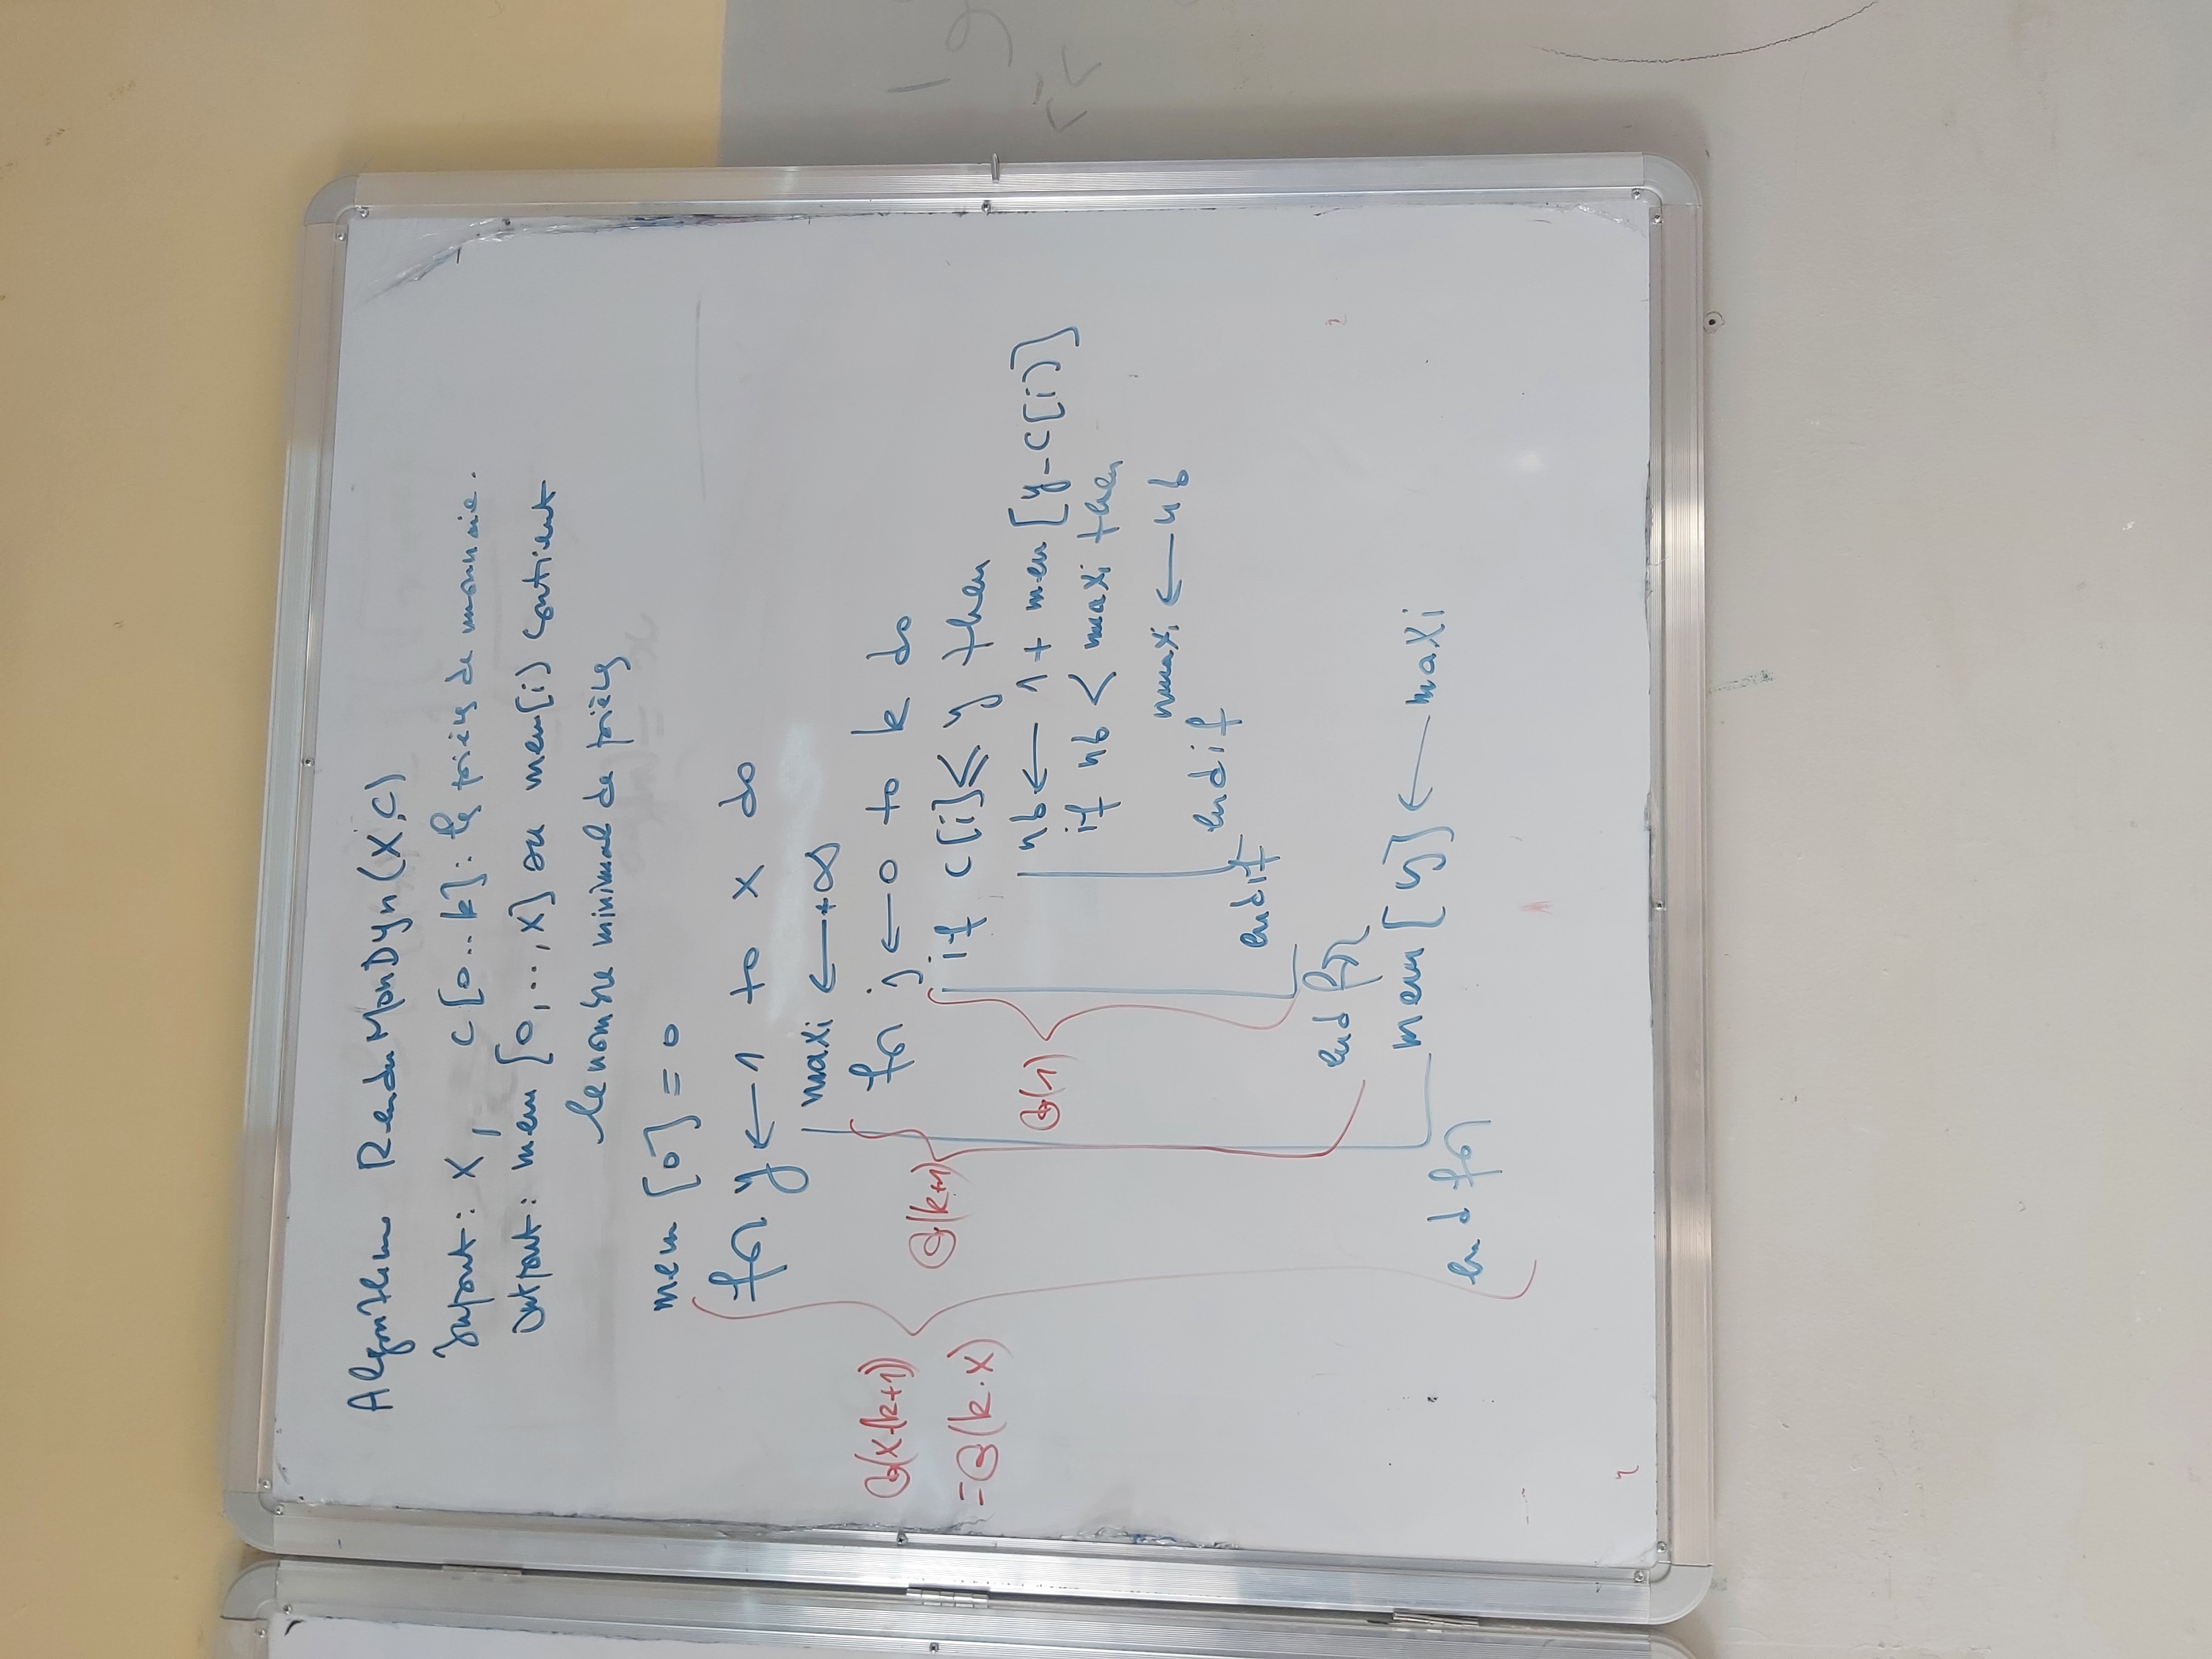 Algorithme RenduMonDyn(X,C)
Input: X, C[0..k]: les pièces de monnaie.
Output: mem [0,..,X] ou mem[i] contient
le nombre minimal de pièces
mem [0] = 0
for y ← 1 to X do
maxi ← +∞
for j ← 0 to k do
if C[i] ≤ y then
nb ← 1 + mem [y-C[i]]
if nb < maxi then
maxi ← nb
endif
endif
end for
mem [y] ← maxi
end for
Θ(X·(k+1))
=Θ(k·X)
Θ(k+1)
Θ(1)